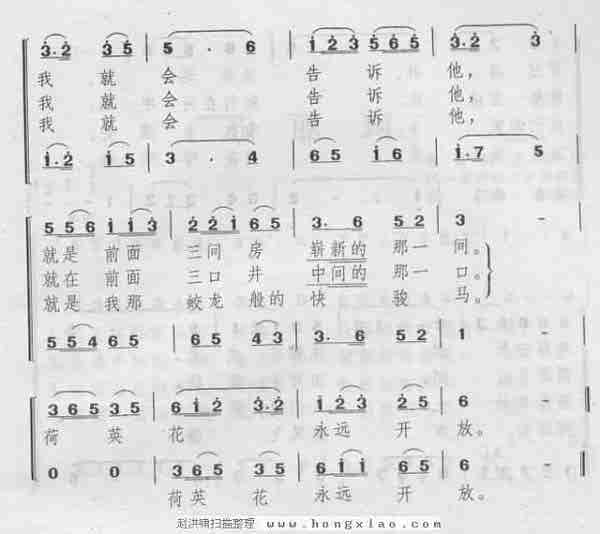 3·2 3 5 | 5 · 6 | i 2 3 5 6 5 | 3·2 3
我 就 会 告 诉 他，
我 就 会 告 诉 他，
我 就 会 告 诉 他，
i·2 i 5 | 3 · 4 | 6 5 i 6 | i·7 5
5 5 6 i i 3 | 2 2 i 6 5 | 3· 6 5 2 | 3 -
就是 前面 三间 房 崭新的 那一 间。
就在 前面 三口 井 中间的 那一 口。
就是 我那 蛟龙 般的 快 骏 马。
5 5 4 6 5 | 6 5 4 3 | 3· 6 5 2 | 1 -
3 6 5 3 5 | 6 i 2 3·2 | i 2 3 2 5 | 6 -
荷 英 花 永远 开 放。
0 0 | 3 6 5 3 5 | 6 i i 6 5 | 6 -
荷英 花 永远 开 放。
扫描整理 www.hongxiao.com